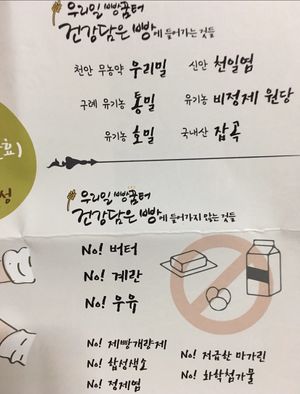 우리밀 빵꿈터
건강담은 빵에 들어가는 것들
천안 무농약 우리밀
신안 천일염
구례 유기농 통밀
유기농 비정제 원당
유기농 호밀
국내산 잡곡
우리밀 빵꿈터
건강담은 빵에 들어가지 않는 것들
No! 버터
No! 계란
No! 우유
No! 제빵개량제
No! 저급한 마가린
No! 합성색소
No! 화학첨가물
No! 정제염